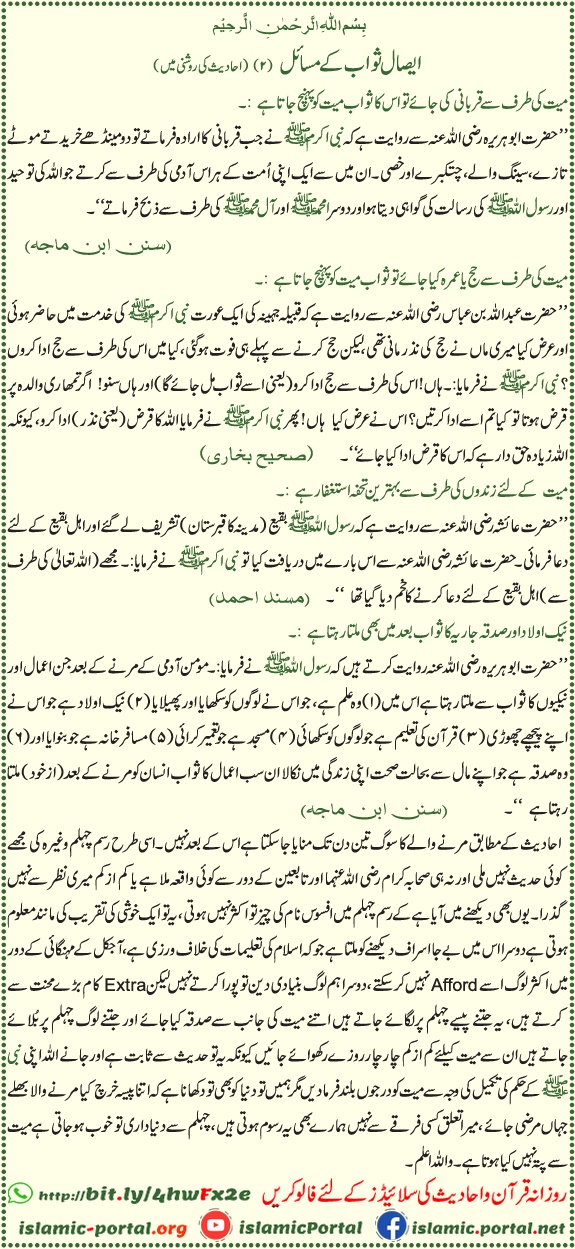 بِسْمِ اللهِ الرَّحْمٰنِ الرَّحِيْمِ
ایصال ثواب کے مسائل (۲) (احادیث کی روشنی میں)
میت کی طرف سے قربانی کی جائے تو اس کا ثواب میت کو پہنچ جاتا ہے :۔
’’حضرت ابو ہریرہ رضی اللہ عنہ سے روایت ہے کہ نبی اکرم ﷺ نے جب قربانی کا ارادہ فرماتے تو دو مینڈھے خریدتے موٹے
تازے، سینگ والے، چتکبرے اور خصی۔ ان میں سے ایک اپنی اُمت کے ہر اس آدمی کی طرف سے کرتے جو اللہ کی توحید
اور رسول اللہ ﷺ کی رسالت کی گواہی دیتا ہو اور دوسرا محمد ﷺ اور آل محمد ﷺ کی طرف سے ذبح فرماتے‘‘۔
(سنن ابن ماجه)
میت کی طرف سے حج یا عمرہ کیا جائے تو ثواب میت کو پہنچ جاتا ہے :۔
’’حضرت عبداللہ بن عباس رضی اللہ عنہ سے روایت ہے کہ قبیلہ جہینہ کی ایک عورت نبی اکرم ﷺ کی خدمت میں حاضر ہوئی
اور عرض کیا میری ماں نے حج کی نذر مانی تھی، لیکن حج کرنے سے پہلے ہی فوت ہوگئی، کیا میں اس کی طرف سے حج ادا کروں
؟ نبی اکرم ﷺ نے فرمایا:۔ ہاں! اس کی طرف سے حج ادا کرو (یعنی اسے ثواب مل جائے گا) اور ہاں سنو! اگر تمھاری والدہ پر
قرض ہوتا تو کیا تم اسے ادا کرتیں؟ اس نے عرض کیا ہاں! پھر نبی اکرم ﷺ نے فرمایا اللہ کا قرض (یعنی نذر) ادا کرو، کیونکہ
اللہ زیادہ حق دار ہے کہ اس کا قرض ادا کیا جائے‘‘۔ (صحیح بخاری)
میت کے لئے زندوں کی طرف سے بہترین تحفہ استغفار ہے :۔
’’حضرت عائشہ رضی اللہ عنہ سے روایت ہے کہ رسول اللہ ﷺ بقیع (مدینہ کا قبرستان) تشریف لے گئے اور اہل بقیع کے لئے
دعا فرمائی۔ حضرت عائشہ رضی اللہ عنہ سے اس بارے میں دریافت کیا تو نبی اکرم ﷺ نے فرمایا:۔ مجھے (اللہ تعالیٰ کی طرف
سے) اہل بقیع کے لئے دعا کرنے کا حکم دیا گیا تھا ‘‘۔ (مسند احمد)
نیک اولاد اور صدقہ جاریہ کا ثواب بعد میں بھی ملتا رہتا ہے :۔
’’حضرت ابو ہریرہ رضی اللہ عنہ روایت کرتے ہیں کہ رسول اللہ ﷺ نے فرمایا:۔ مؤمن آدمی کے مرنے کے بعد جن اعمال اور
نیکیوں کا ثواب سے ملتا رہتا ہے اس میں (۱) وہ علم ہے، جو اس نے لوگوں کو سکھایا اور پھیلایا (۲) نیک اولاد ہے جو اس نے
اپنے پیچھے چھوڑی (۳) قرآن کی تعلیم ہے جو لوگوں کو سکھائی (۴) مسجد ہے جو تعمیر کرائی (۵) مسافر خانہ ہے جو بنوایا اور (۶)
وہ صدقہ ہے جو اپنے مال سے بحالت صحت اپنی زندگی میں نکالا ان سب اعمال کا ثواب انسان کو مرنے کے بعد (از خود) ملتا
رہتا ہے ‘‘۔ (سنن ابن ماجه)
احادیث کے مطابق مرنے والے کا سوگ تین دن تک منایا جاسکتا ہے اس کے بعد نہیں۔ اسی طرح رسم چہلم وغیرہ کی مجھے
کوئی حدیث نہیں ملی اور نہ ہی صحابہ کرام رضی اللہ عنہما اور تابعین کے دور سے کوئی واقعہ ملا ہے یا کم از کم میری نظر سے نہیں
گذرا۔ یوں بھی دیکھنے میں آیا ہے کے رسم چہلم میں افسوس نام کی چیز تو اکثر نہیں ہوتی، یہ تو ایک خوشی کی تقریب کی مانند معلوم
ہوتی ہے دوسرا اس میں بے جا اسراف دیکھنے کو ملتا ہے جو کہ اسلام کی تعلیمات کی خلاف ورزی ہے، آجکل کے مہنگائی کے دور
میں اکثر لوگ اسے Afford نہیں کرسکتے، دوسرا ہم لوگ بنیادی دین تو پورا کرتے نہیں لیکن Extra کام بڑے محنت سے
کرتے ہیں، یہ جتنے پیسے چہلم پر لگائے جاتے ہیں اتنے میت کی جانب سے صدقہ کیا جائے اور جتنے لوگ چہلم پر بلائے
جاتے ہیں ان سے میت کیلئے کم از کم چار چار روزے رکھوائے جائیں کیونکہ یہ تو حدیث سے ثابت ہے اور جانے اللہ اپنی نبی
ﷺ کے حکم کی تکمیل کی وجہ سے میت کو درجوں بلند فرمادیں مگر ہمیں تو دنیا کو بھی تو دکھانا ہے کہ اتنا پیسہ خرچ کیا مرنے والا بھلے
جہاں مرضی جائے، میرا تعلق کسی فرقے سے نہیں ہمارے بھی یہ رسوم ہوتی ہیں، چہلم سے دنیا داری تو خوب ہو جاتی ہے میت
سے پتہ نہیں کیا ہوتا ہے۔ واللہ اعلم۔
روزانہ قرآن و احادیث کی سلائیڈز کے لئے فالو کریں http://bit.ly/4hwFx2e
islamic-portal.org islamicPortal islamic.portal.net